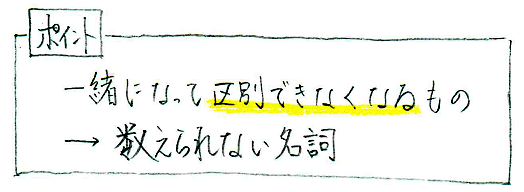 ポイント
一緒になって区別できなくなるもの
→ 数えられない名詞